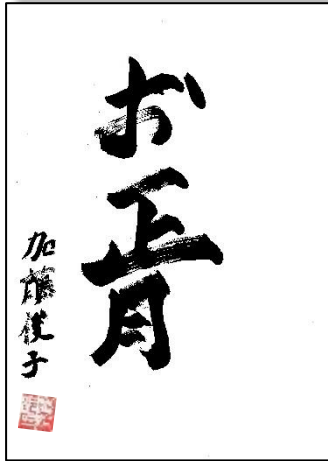 お正月
加藤俊子